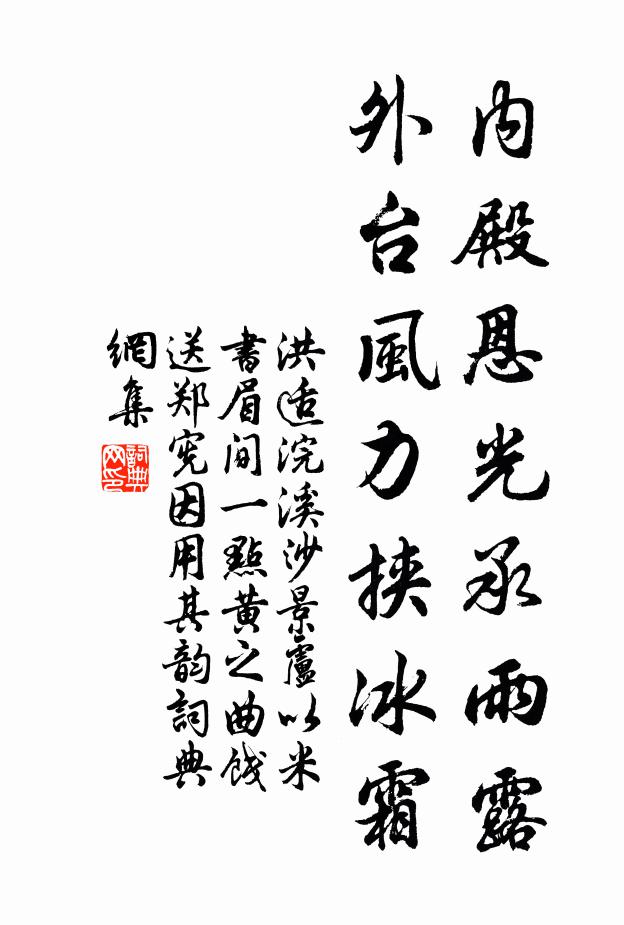 内殿恩光承雨露
外台風力挾冰霜
洪适浣溪沙景盧以米
書眉间一點黄之曲餞
送郑宪因用其韵詞典
網集
詞典
网印